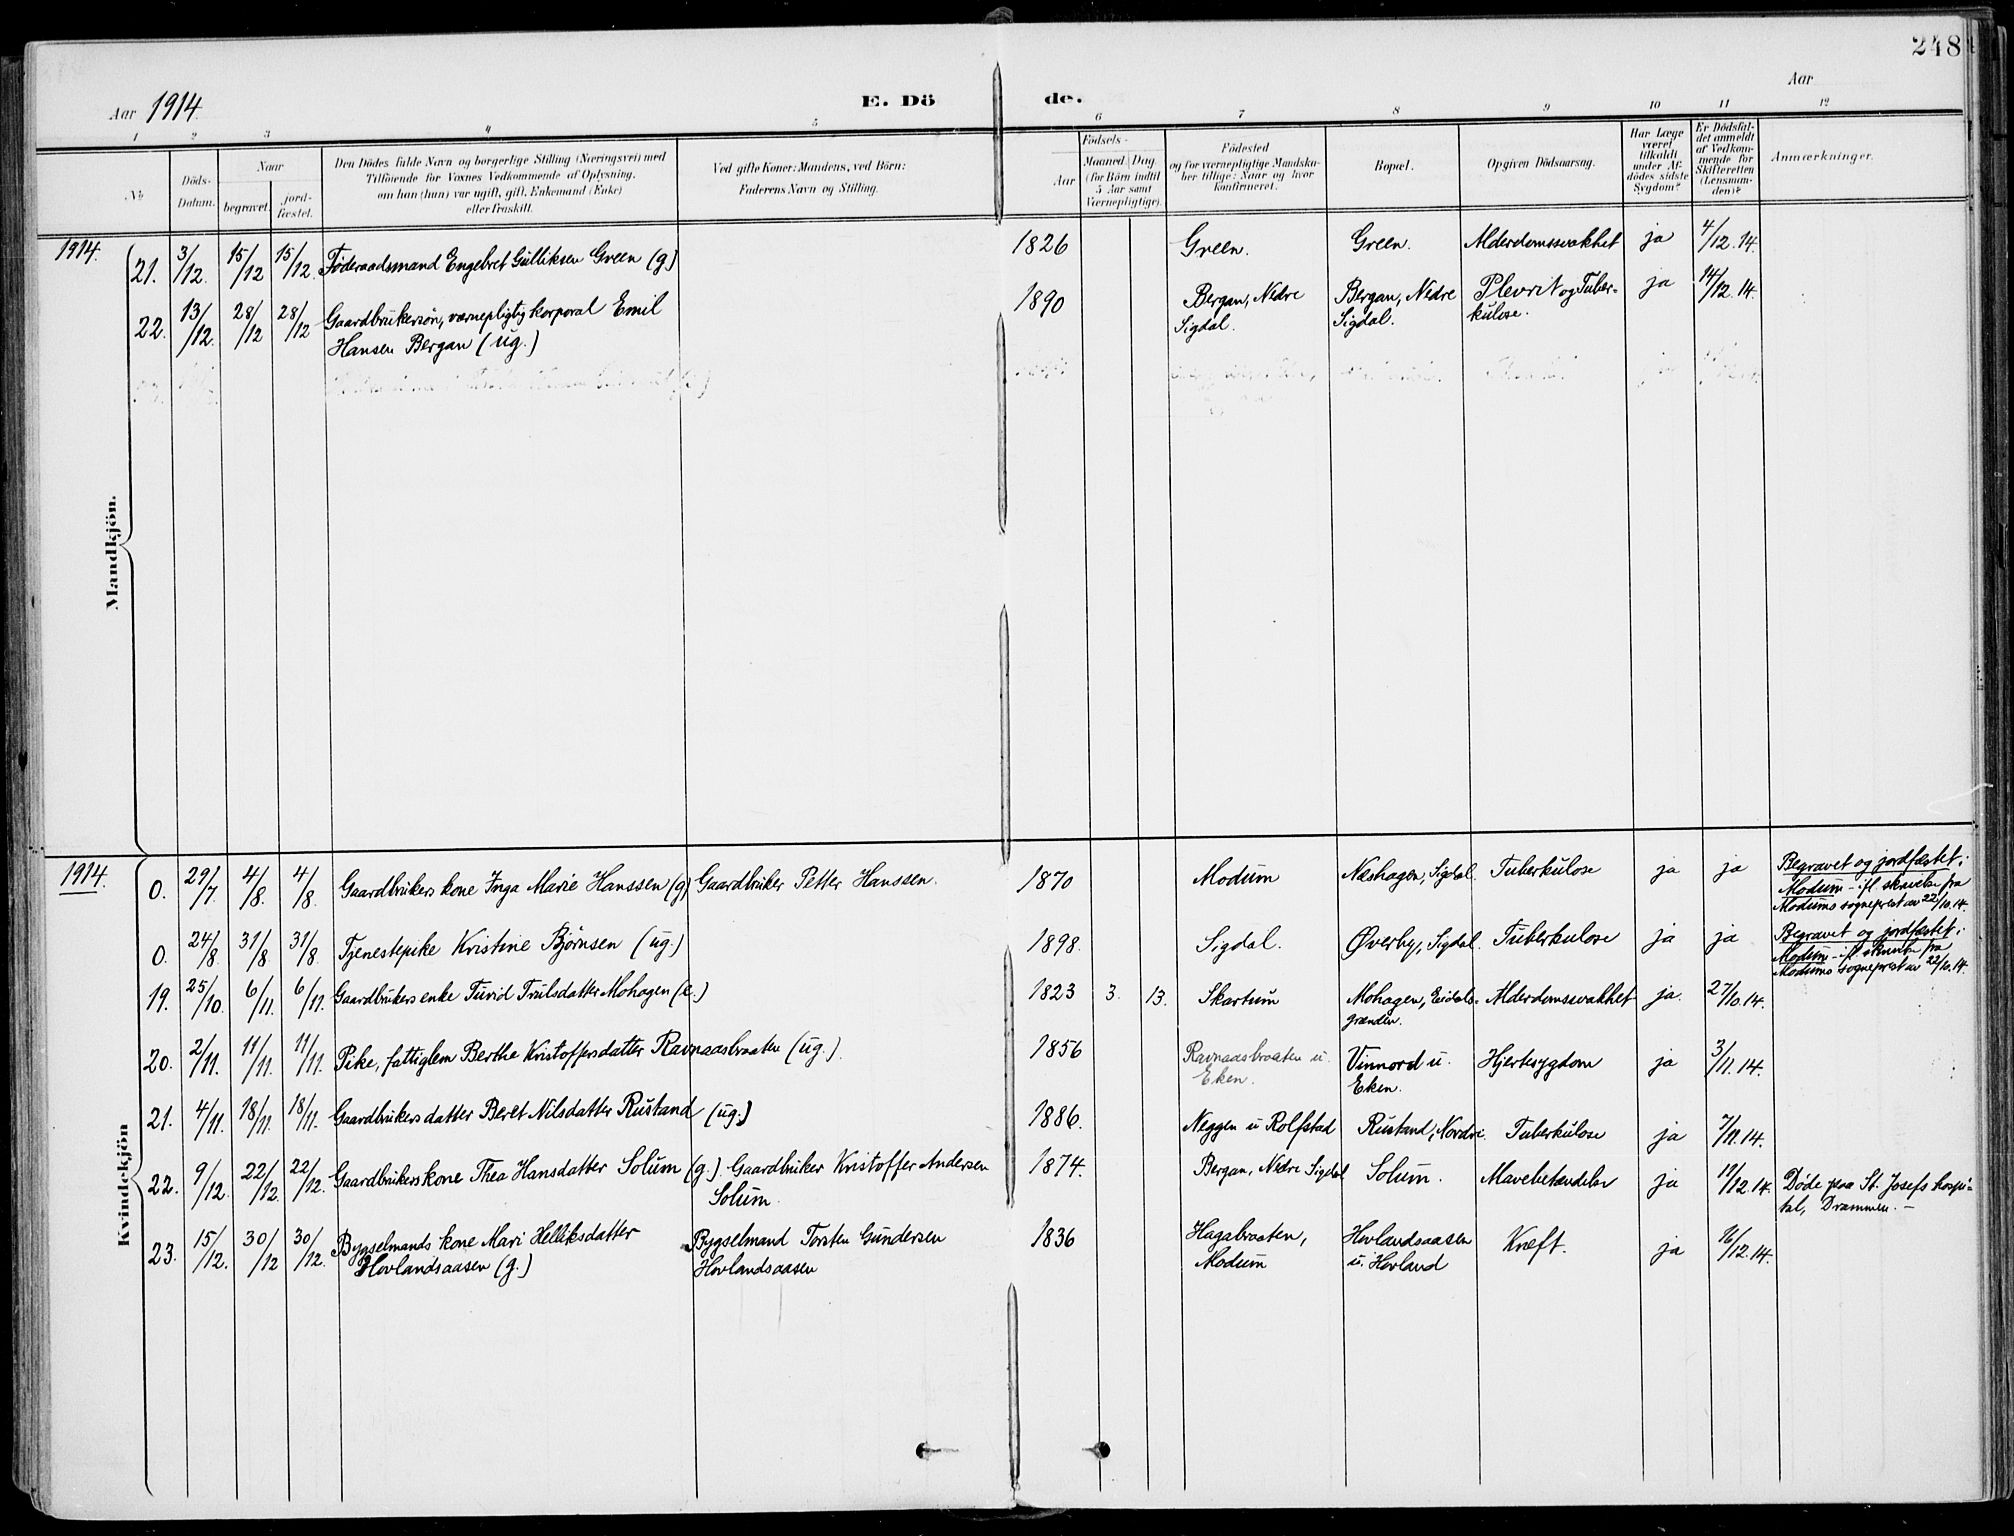 248
Aar 1914. E. Dö de. Aar
1 2 3 4 5 6 7 8 9 10 11 12
No. Döds-Datum. Naar begravet. jord-fæstet. Den Dödes fulde Navn og borgerlige Stilling (Næringsvei) med Tilföiende for Voxnes Vedkommende af Oplysning, om han (hun) var ugift, gift, Enkemand (Enke) eller fraskilt. Ved gifte Koner: Mandens, ved Börn: Faderens Navn og Stilling. Födsels- Aar Maaned Dag (for Börn indtil 5 Aar samt Værnepligtige). Födested og for værnepligtige Mandskaber tillige: Naar og hvor konfirmeret. Bopæl. Opgiven Dödsaarsag. Har Læge været tilkaldt under Afdödes sidste Sygdom? Er Dödsfaldet anmeldt af Vedkommende for Skifteretten (Lensmanden)? Anmærkninger.
Mandkjön.
1914.
21. 3/12. 15/12 15/12. Føderaadsmand Engebret Gulliksen Green (g) 1826 Green. Green. Alderdomssvakhet ja 4/12.14.
22. 13/12. 28/12 28/12 Gaardbrukersøn, værnepligtig korporal Emil 1890 Bergan, Nedre Bergan, Nedre Plevrit og Tuber- ja 14/12.14.
Hansen Bergan (ug.) Sigdal. Sigdal. kulose.
Kvindekjön
1914.
0. 29/7. 4/8. 4/8. Gaardbrukers kone Inga Marie Hanssen (g) Gaardbruker Petter Hanssen. 1870 Modum Næshagen, Sigdal. Tuberkulose ja ja Begravet og jordfæstet i
Modum - ifl. skrivelse fra
Modums sogneprest av 22/10.14.
0. 24/8. 31/8 31/8. Tjenestepike Kristine Bjørnsen (ug.) 1898. Sigdal. Øverby, Sigdal. Tuberkulose ja ja Begravet og jordfæstet i
Modum - ifl. skrivelse fra
Modums sogneprest av 22/10.14.
19. 25/10. 6/11. 6/11. Gaardbrukers enke Turid Trulsdatter Mohagen (e.) 1823 3. 13. Skartum Mohagen, Eidals- Alderdomssvakhet ja. 27/10.14.
grænden.
20. 2/11. 11/11. 11/11. Pike, fattiglem Berthe Kristoffersdatter Ravnaasbraaten (ug.). 1856 Ravnaasbraaten u. Vinnord u. Hjertesygdom ja 3/11.14.
Eken. Eken.
21. 4/11. 18/11. 18/11. Gaardbrukers datter Beret Nilsdatter Rustand (ug.) 1886. Neggen u Rolfstad Rustand, Nordre. Tuberkulose ja 7/11.14.
22. 9/12. 22/12. 22/12. Gaardbrukers kone Thea Hansdatter Solum (g.) Gaardbruker Kristoffer Andersen 1874. Bergan, Nedre Sigdal Solum. Mavebetændelse ja 19/12.14. Døde paa St. Josefs hospi-
Solum. tal, Drammen. -
23. 15/12. 30/12 30/12. Bygselmands kone Mari Helliksdatter Bygselmand Torsten Gundersen 1836 Hagabraaten, Hovlandsaasen Kræft. ja 16/12.14.
Hovlandsaasen (g.) Hovlandsaasen Modum u. Hovland